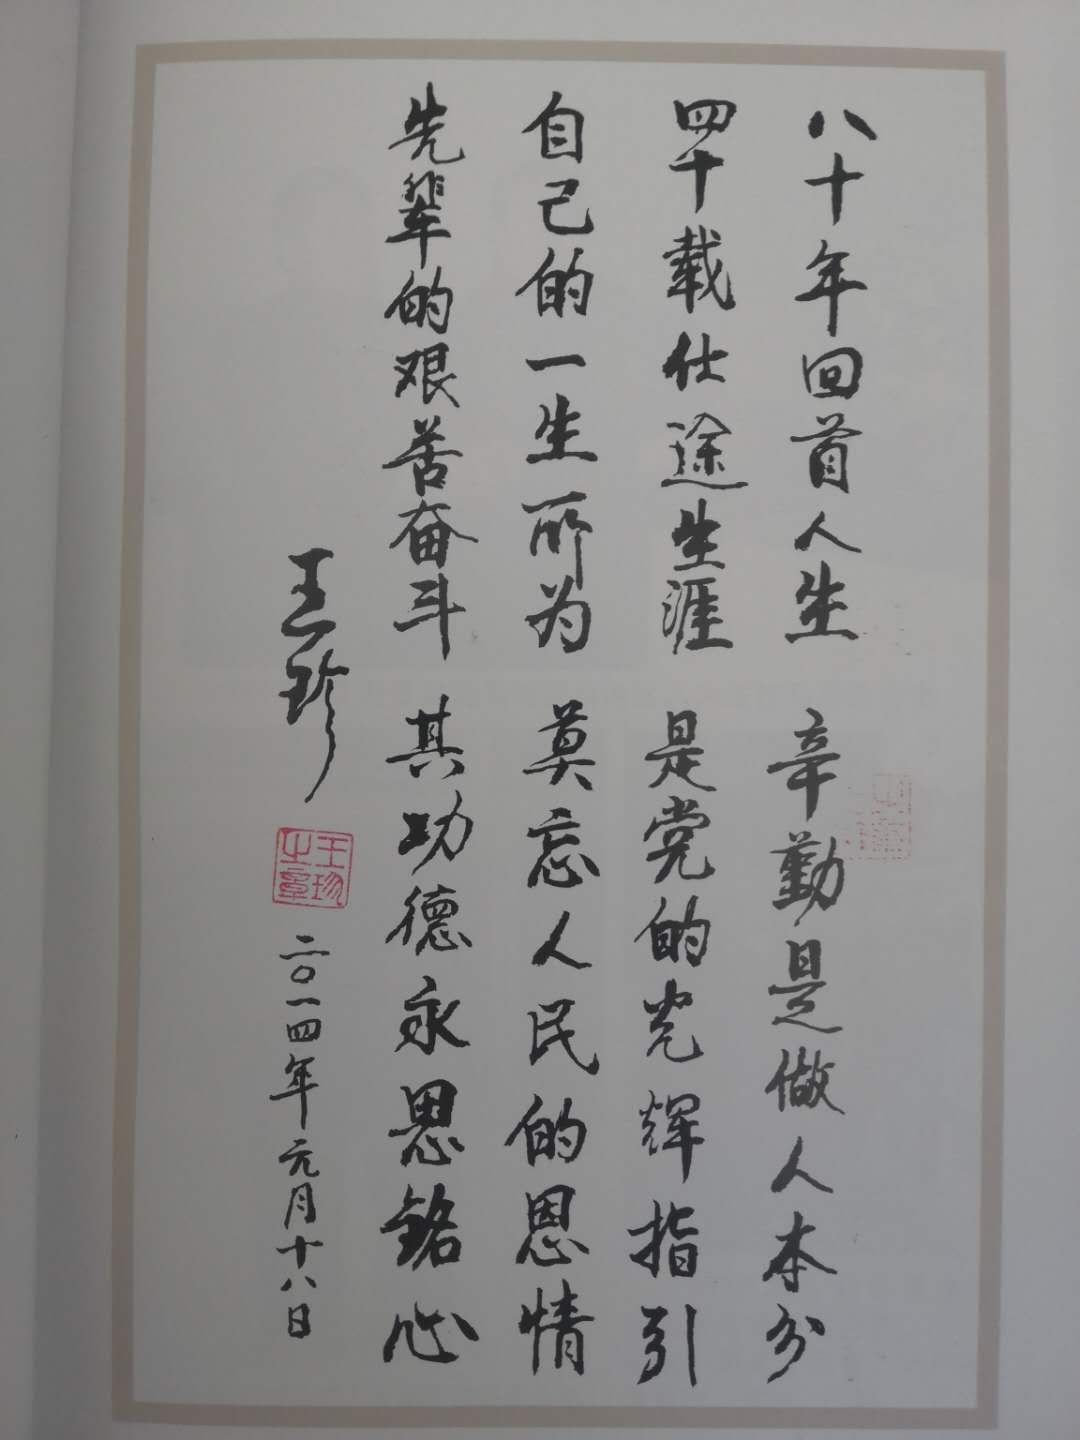 八十年回首人生 辛勤是做人本分
四十载仕途生涯 是党的光辉指引
自己的一生所为 莫忘人民的恩情
先辈的艰苦奋斗 其功德永恩铭心
王珍
王珍之章
二〇一四年元月十八日